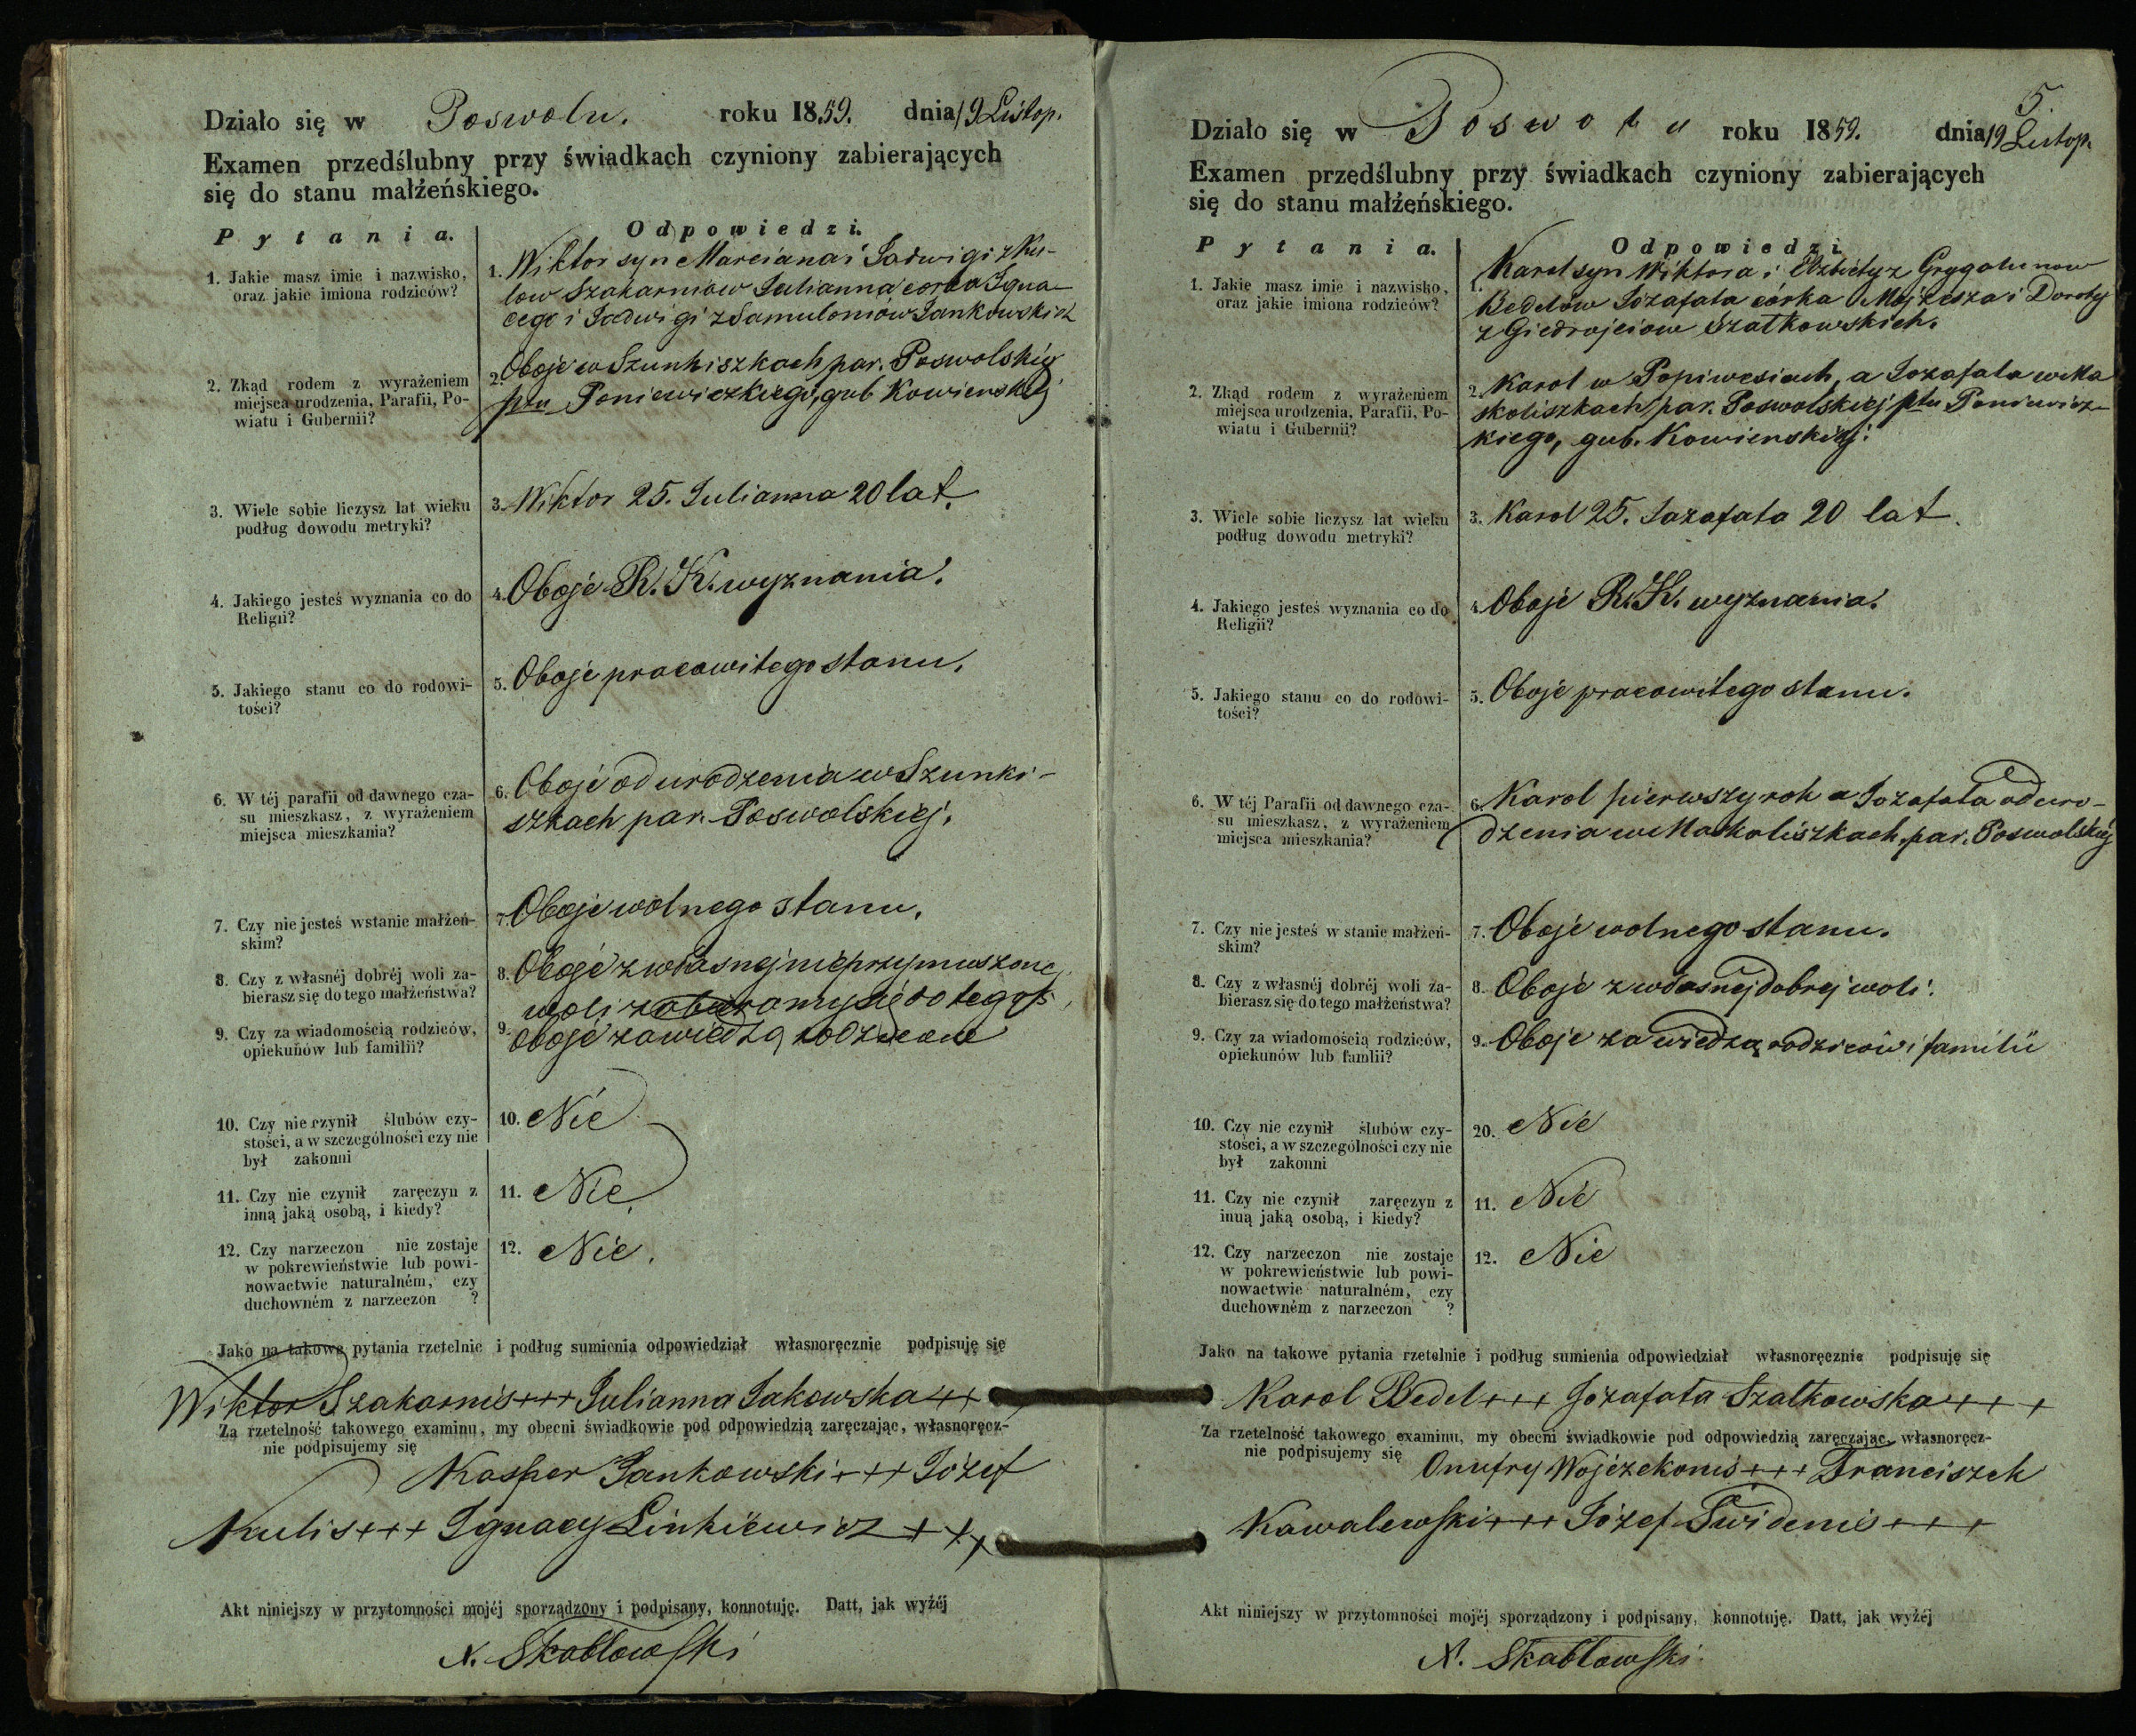 Działo się w Poswolu. roku 1859. dnia 19 Listop.
Examen przedślubny przy świadkach czyniony zabierających
się do stanu małżeńskiego.
Pytania. Odpowiedzi.
1. Jakie masz imie i nazwisko,
oraz jakie imiona rodziców?
1. Wiktor syn Marciana i Jadwigi z Ku-
low Szakarniow Julianna corka Igna-
cego i Jadwigi z Samuloniów Jankowskich
2. Zkąd rodem z wyrażeniem
miejsca urodzenia, Parafii, Po-
wiatu i Gubernii?
2. Oboje w Szunkiszkach par. Poswolskiej
ptu Poniewiezkiego, gub Kowienskiej
3. Wiele sobie liczysz lat wieku
podług dowodu metryki?
3. Wiktor 25. Julianna 20 lat.
4. Jakiego jesteś wyznania co do
Religii?
4. Oboje R. K. wyznania.
5. Jakiego stanu co do rodowi-
tości?
5. Oboje pracowitego stanu.
6. W téj parafii od dawnego cza-
su mieszkasz, z wyrażeniem
miejsca mieszkania?
6. Oboje od urodzenia w Szunki-
szkach par. Poswolskiej.
7. Czy nie jesteś wstanie małżeń-
skim?
7. Oboje wolnego stanu.
8. Czy z własnéj dobréj woli za-
bierasz się do tego małżeństwa?
8. Oboje z własnej nieprzymuszonej
woli zabieramy się do tego
9. Czy za wiadomością rodziców,
opiekunów lub familii?
9. Oboje za wiedzą rodzicow
10. Czy nie czynił ślubów czy-
stości, a w szczególności czy nie
był zakonni
10. Nie
11. Czy nie czynił zaręczyn z
inną jaką osobą, i kiedy?
11. Nie.
12. Czy narzeczon nie zostaje
w pokrewieństwie lub powi-
nowactwie naturalném, czy
duchowném z narzeczon ?
12. Nie.
Jako na takowe pytania rzetelnie i podług sumienia odpowiedział własnoręcznie podpisuję się
Wiktor Szakarnis +++ Julianna Jakowska +++
Za rzetelność takowego examinu, my obecni świadkowie pod odpowiedzią zaręczając, własnoręcz-
nie podpisujemy się
Kasper Jankowski +++ Józef
Kulis +++ Ignacy Linkiewicz +++
Akt niniejszy w przytomności mojéj sporządzony i podpisany, konnotuję. Datt, jak wyżéj
X. Skabłowski
5.
Działo się w Poswolu roku 1859. dnia 19 Listop.
Examen przedślubny przy świadkach czyniony zabierających
się do stanu małżeńskiego.
Pytania. Odpowiedzi
1. Jakie masz imie i nazwisko,
oraz jakie imiona rodziców?
1. Karol syn Wiktora i Elzbiety z Grygalunow
Bedelów Jozafata córka Mojzesza i Doroty
z Giedrojciow Szatkowskich.
2. Zkąd rodem z wyrażeniem
miejsca urodzenia, Parafii, Po-
wiatu i Gubernii?
2. Karol w Popiwesiach, a Jozafata w Ma
skoliszkach par. Poswolskiej ptu Poniewiez-
kiego, gub. Kowienskiej.
3. Wiele sobie liczysz lat wieku
podług dowodu metryki?
3. Karol 25. Jozafata 20 lat.
4. Jakiego jesteś wyznania co do
Religii?
4. Oboje R. K. wyznania.
5. Jakiego stanu co do rodowi-
tości?
5. Oboje pracowitego stanu.
6. W téj Parafii od dawnego cza-
su mieszkasz, z wyrażeniem
miejsca mieszkania?
6. Karol pierwszy rok a Jozafata od uro-
dzenia w Maskoliszkach par. Poswolskiej
7. Czy nie jesteś w stanie małżeń-
skim?
7. Oboje wolnego stanu.
8. Czy z własnéj dobréj woli za-
bierasz się do tego małżeństwa?
8. Oboje z własnej dobrej woli.
9. Czy za wiadomością rodziców,
opiekunów lub famlii?
9. Oboje za wiedzą rodzicòw i familii
10. Czy nie czynił ślubów czy-
stości, a w szczególności czy nie
był zakonni
20. Nie
11. Czy nie czynił zaręczyn z
inuą jaką osobą, i kiedy?
11. Nie
12. Czy narzeczon nie zostaje
w pokrewieństwie lub powi-
nowactwie naturalném, czy
duchowném z narzeczon ?
12. Nie
Jako na takowe pytania rzetelnie i podług sumienia odpowiedział własnoręcznie podpisuję się
Karol Bedel +++ Jozafata Szatkowska +++
Za rzetelność takowego examinu, my obecni świadkowie pod odpowiedzią zaręczając, własnoręcz-
nie podpisujemy się
Onufry Wojczekonis +++ Franciszek
Kawalewski +++ Józef Swidenis +++
Akt niniejszy w przytomności mojéj sporządzony i podpisany, konnotuję. Datt, jak wyżéj
X. Skabłowski.